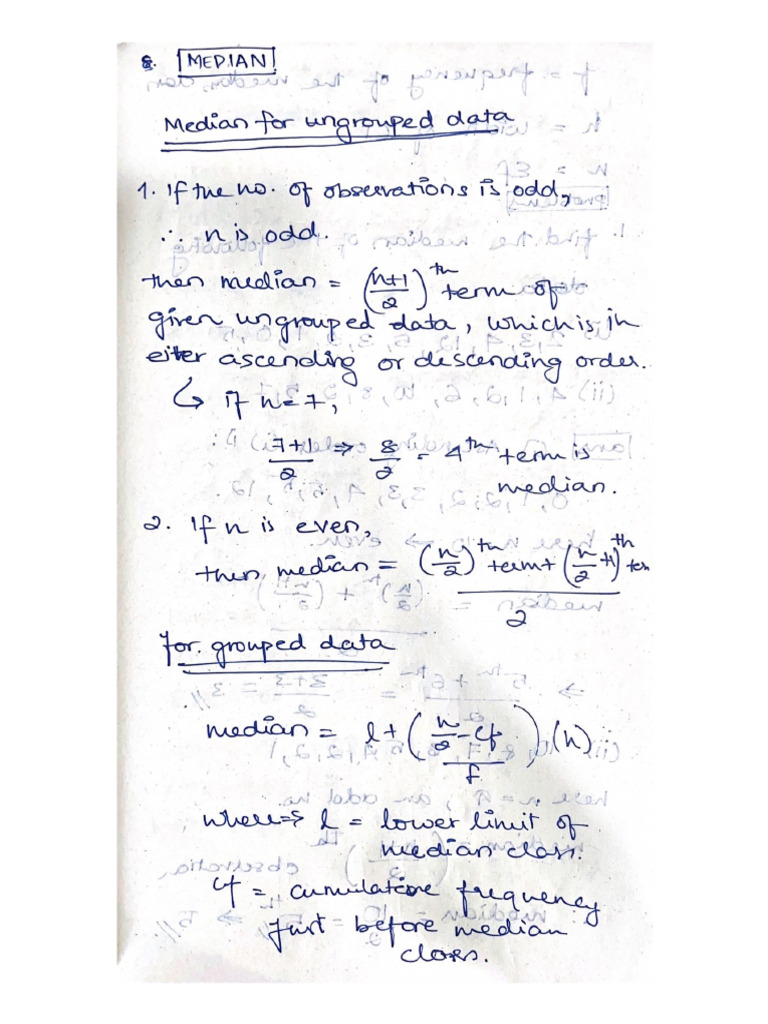 8. MEDIAN
Median for ungrouped data
1. If the no. of observations is odd,
∴ n is odd.
then median = (n+1/2)th term of
given ungrouped data, which is in
eiter ascending or descending order.
↳ if n=7,
7+1/2 ⇒ 8/2 = 4th term is
median.
2. If n is even,
then median = (n/2)th term + (n/2+1)th term / 2
for grouped data
median = l + (n/2 - cf / f) (h)
where⇒ l = lower limit of
median class.
cf = cumulative frequency
just before median
class.